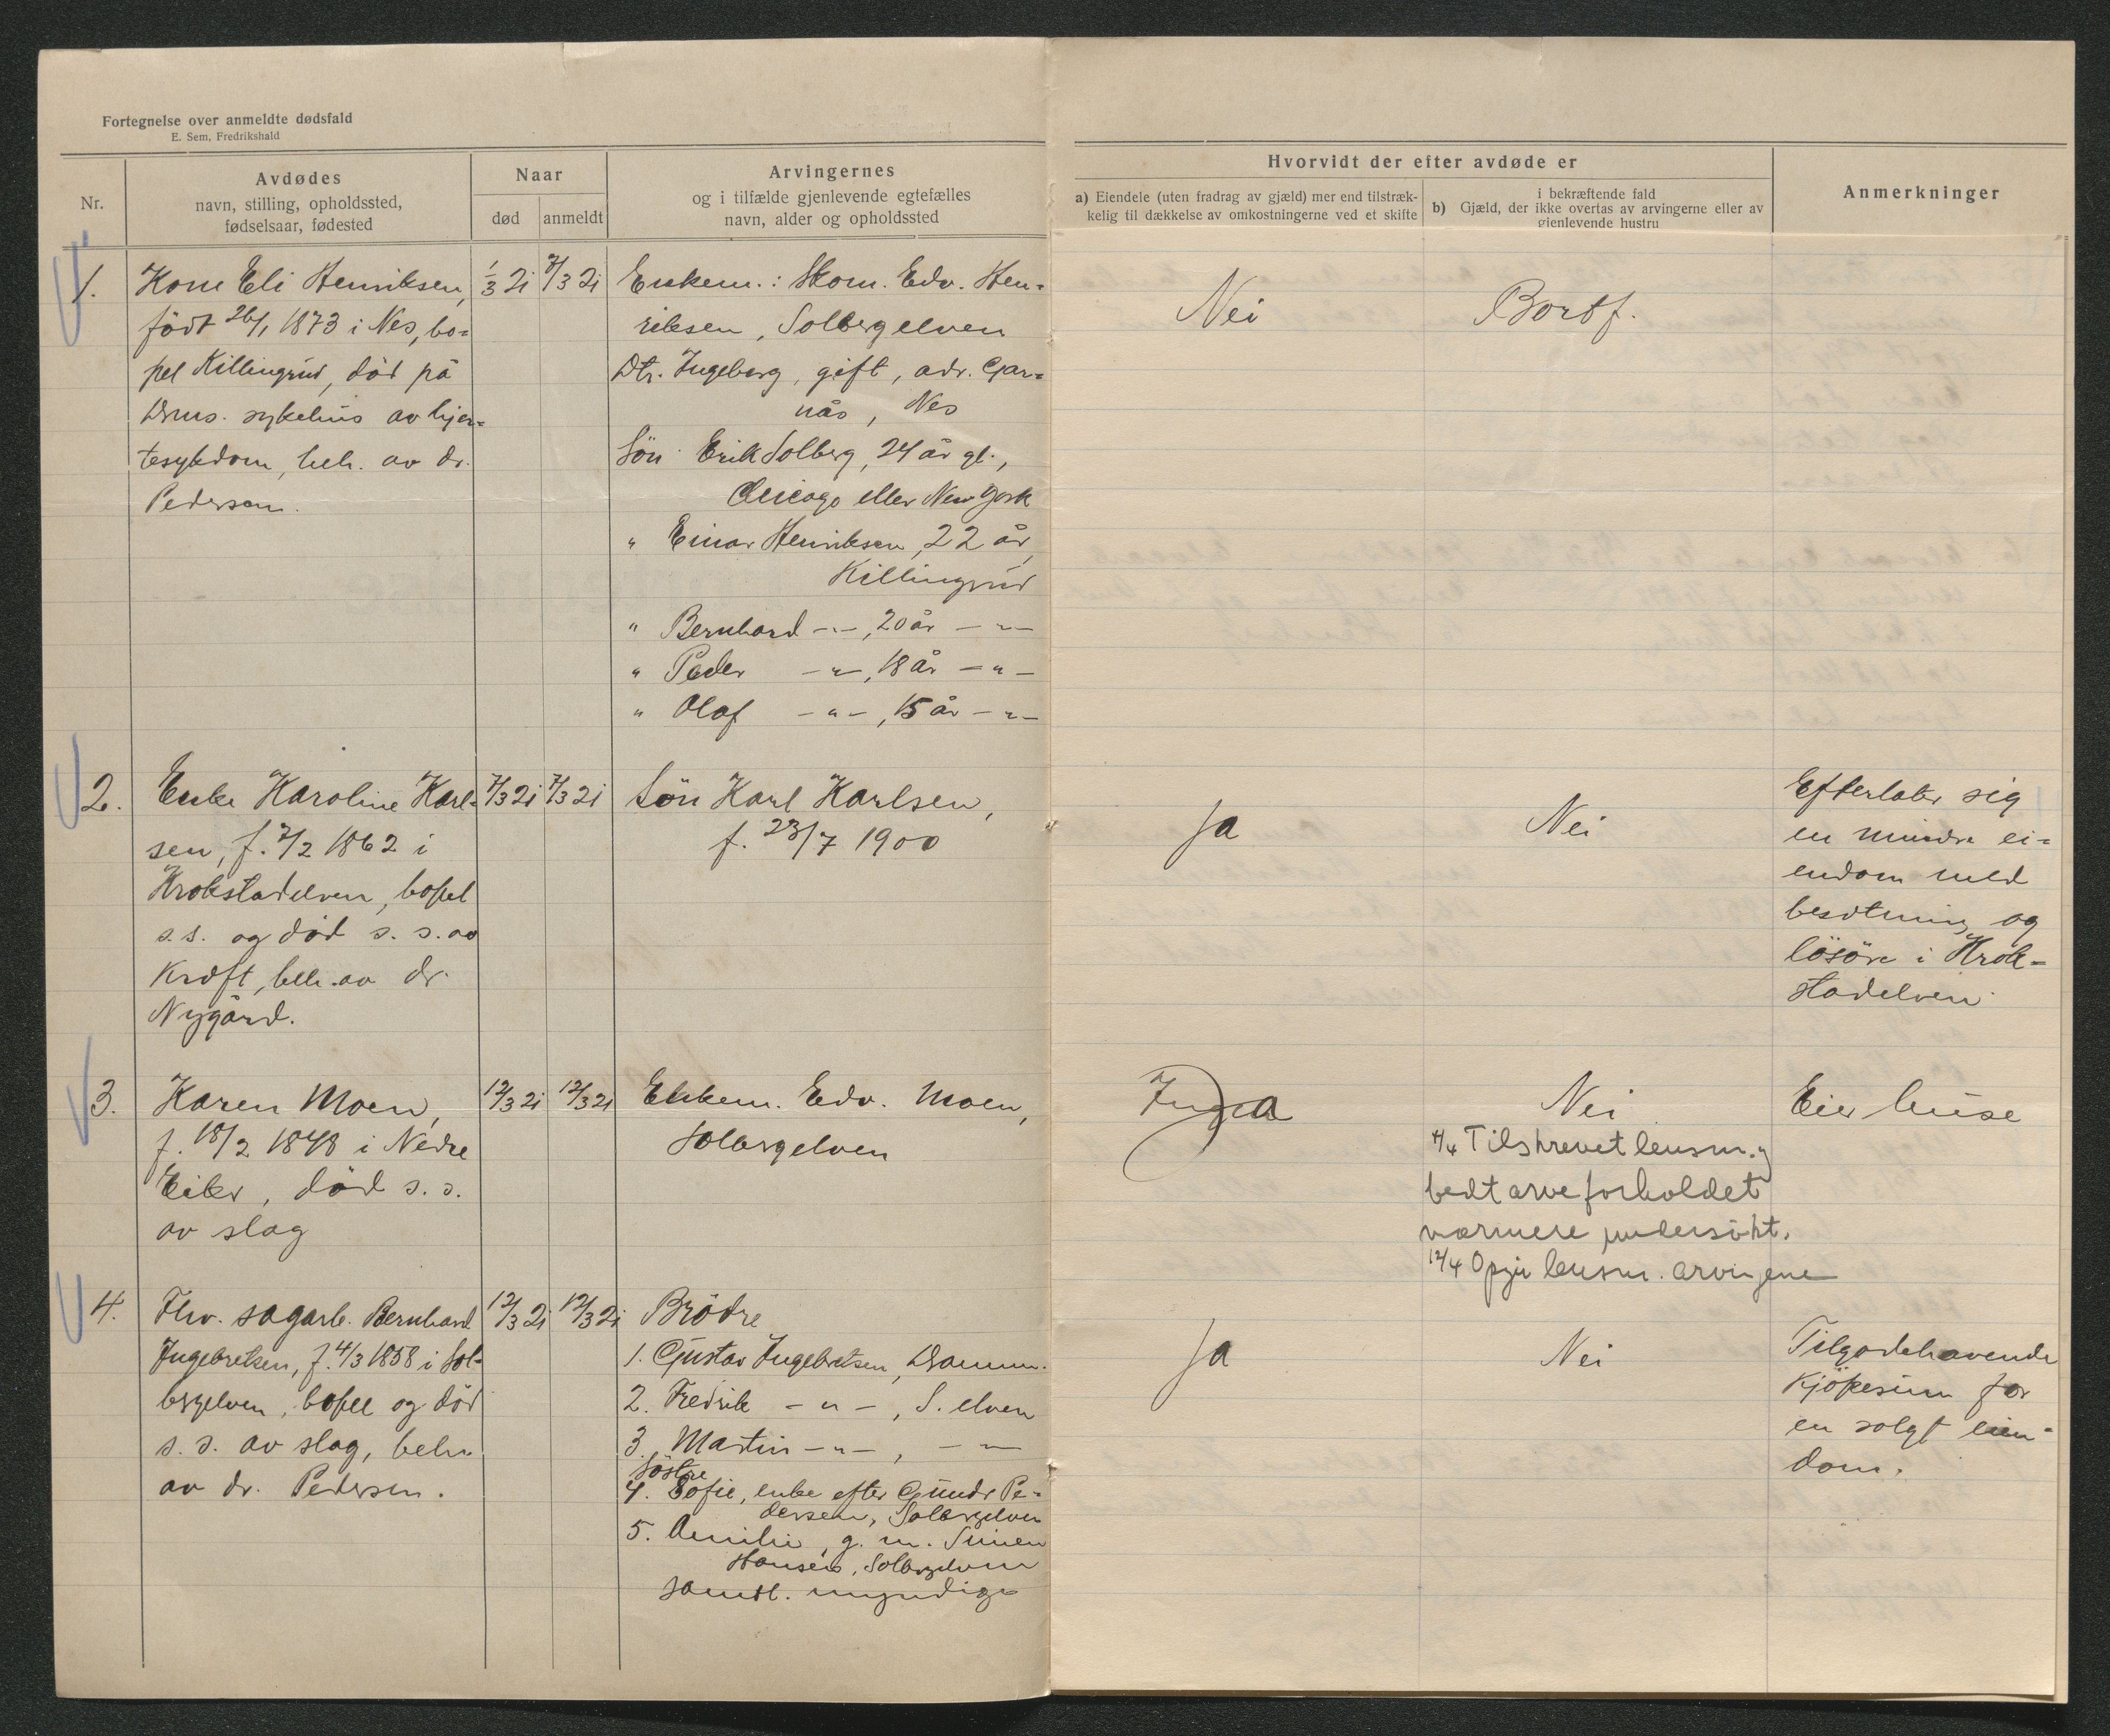 Fortegnelse over anmeldte dødsfald
E. Sem, Fredrikshald
Nr.
Avdødes
navn, stilling, opholdssted,
fødselsaar, fødested
Naar
død
anmeldt
Arvingernes
og i tilfælde gjenlevende egtefælles
navn, alder og opholdssted
Hvorvidt der efter avdøde er
a) Eiendele (uten fradrag av gjæld) mer end tilstræk-
kelig til dækkelse av omkostningerne ved et skifte
i bekræftende fald
b) Gjæld, der ikke overtas av arvingerne eller av
gjenlevende hustru
Anmerkninger
1.
Kone Eli Henriksen,
født 26/1 1873 i Nes, bo=
pel Killingrud, död på
Drms. sykehus av hjer=
tesykdom, beh. av dr.
Pedersen.
1/3 21
7/3 21
Enkem.: Skom. Edv. Hen=
riksen, Solbergelven
Dtr. Ingeborg, gift, adr. Gar=
nås, Nes
Sön Erik Solberg, 24 år gl.,
Chicago eller New York
" Einar Henriksen, 22 år,
Killingrud
" Bernhard -"-, 20 år -"-
" Peder -"-, 18 år -"-
" Olaf -"-, 15 år -"-
Nei
Bortf.
2.
Enke Karoline Karl-
sen, f. 7/2 1862 i
Krokstadelven, bopel
s.s. og död s.s. av
kræft, beh. av dr.
Nygård.
7/3 21
7/3 21
Sön Karl Karlsen,
f. 23/7 1900
Ja
Nei
Efterlater sig
en mindre ei=
endom med
besætning og
lösöre i Krok-
stadelven
3.
Karen Moen,
f. 18/2 1848 i Nedre
Eiker, död s.s.
av slag
12/3 21
12/3 21
Enkem. Edv. Moen,
Solbergelven
Ja
Nei
4/4 Tilskrevet lensm. og
bedt arveforholdet
nærmere undersökt.
12/4 Opgir lensm. arvingene
Eier huse
4.
Fhv. sagarb. Bernhard
Ingebretsen, f. 4/3 1858 i Sol-
bergelven, bopel og död
s.s. av slag, beh.
av dr. Pedersen.
12/3 21
12/3 21
Brödre
1. Gustav Ingebretsen, Dramm.
2. Fredrik -"-, S. elven
3. Martin -"-, -"-
Söstre
4. Sofie, enke efter Gunder Pe=
dersen, Solbergelven
5. Amilie, g. m. Simen
Hansen, Solbergelven
samtl. myndige
Ja
Nei
Tilgodehavende
kjöpesum for
en solgt eien=
dom.